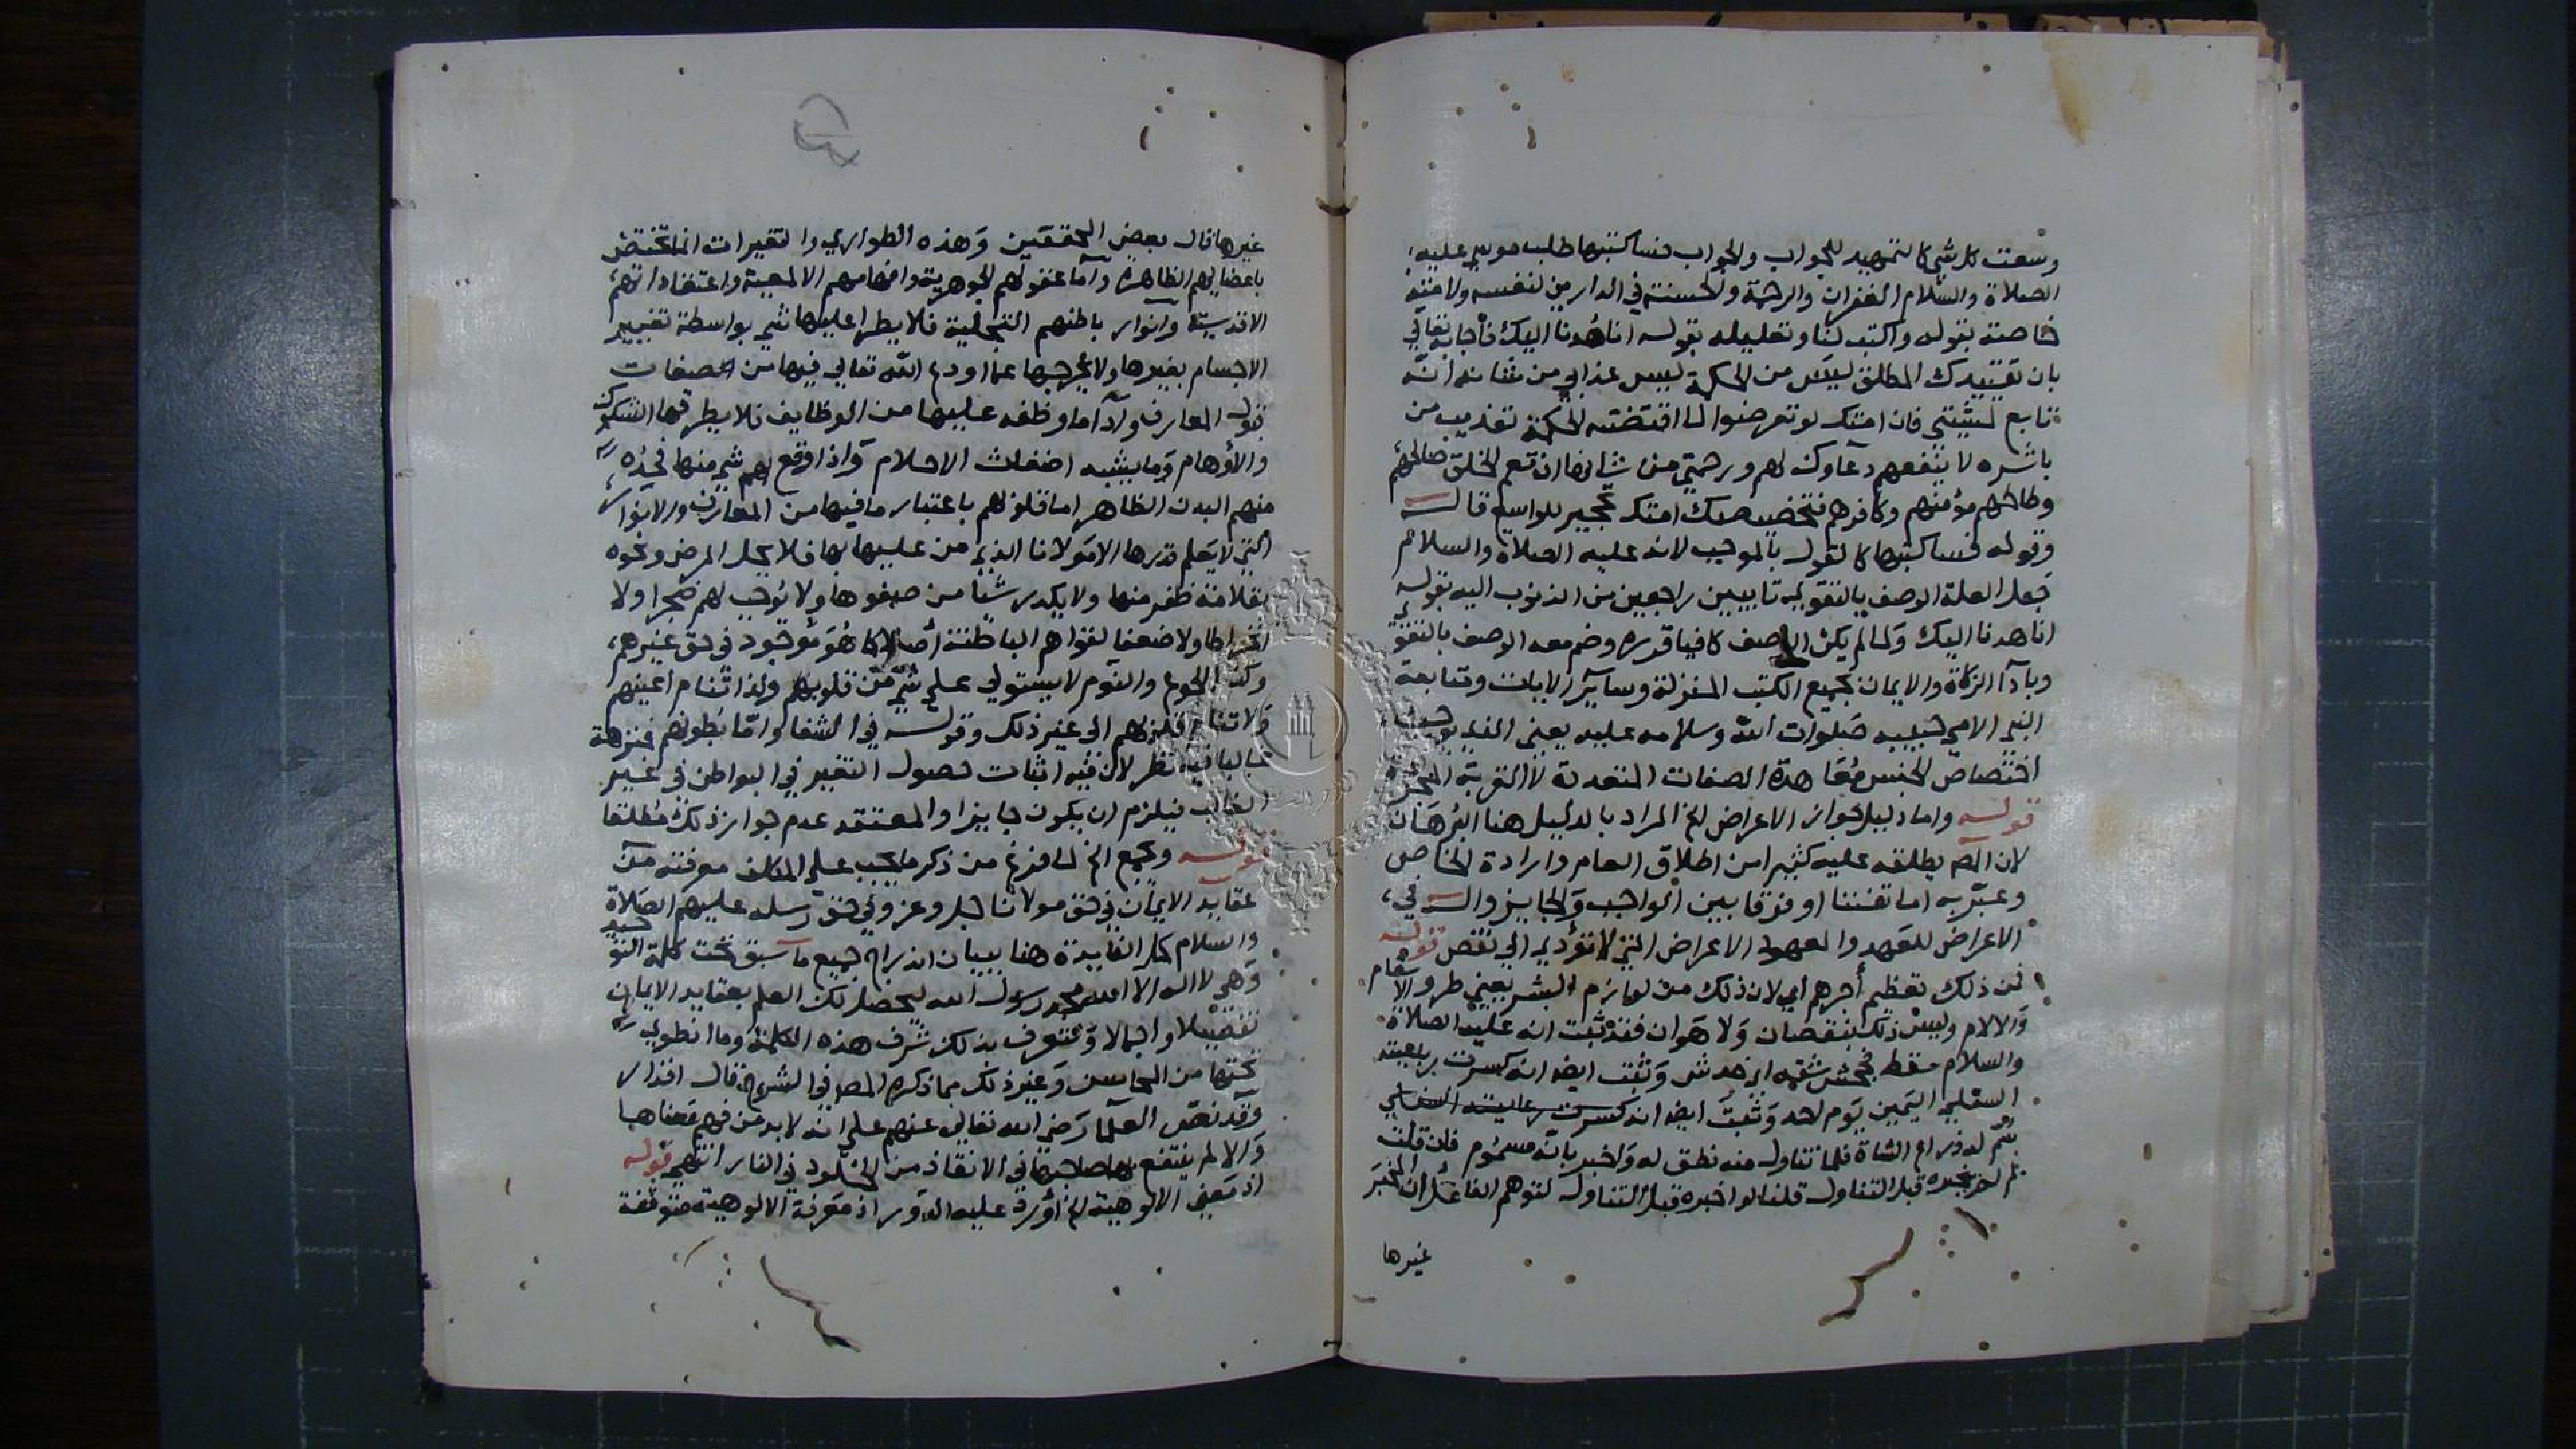 وسعت كل شي كالتمهيد للجواب والجواب فساكتبها طلب موسى عليه
الصلاة والسلام الغفران والرحمة والحسنة في الدارين لنفسه ولامته
خاصة بقوله واكتب لنا وتعليله بقوله انا هدنا اليك فأجابه تعالى
بان تقييدك المطلق ليس من الحكمة ليس عذابي من شانه انه
تابع لمشيتي فان امتك لو تعرضوا لما اقتضته الحكمة تعذيب من
باشره لا ينفعهم دعاوك لهم ورحمتي من شانها ان تعم الخلق صالحهم
وطالحهم مؤمنهم وكافرهم فتخصيصك امتك تحجير للواسع قال
وقوله فساكتبها كالقول بالموجب لانه عليه الصلاة والسلام
جعل العلة الوصف بالتقوى تايبين راجعين من الذنوب اليه بقوله
انا هدنا اليك ولما لم يكن الوصف كافيا قرره وضم معه الوصف بالتقوى
وبادآ الزكاة والايمان بجميع الكتب المنزلة وساير الايات ومتابعة
النبي الامي حبيبه صلوات الله وسلامه عليه يعني الذي يوجب
اختصاص الجنس معاهدة الصفات المتعددة لا التوبة المجردة
قوله واما دليل جواز الاعراض الخ المراد بالدليل هنا البرهان
لان المص يطلقه عليه كثيرا من اطلاق العام وارادة الخاص
وعبّر به اما تفننا او فرقا بين الواجب والجايز والـ في
الاعراض للعهد والعهد الاعراض التي لا تؤدي الى نقص قوله
فمن ذلك تعظيم أجرهم أي لان ذلك من لوازم البشر يعني طرو الاسقام
والالام وليس ذلك بنقصان ولا هوان فقد ثبت انه عليه الصلاة
والسلام سقط فجحش شقه اي خدش وثبت ايضا انه كسرت رباعيته
السفلى اليمين يوم احد وثبت ايضا انه كسرت رباعيته السفلى
سُم له ذراع الشاة فلما تناول منه نطق له واخبر بانه مسموم فان قلت
لم لم يخبره قبل التناول قلنا لو اخبره قبل التناول لتوهم الغافل ان المخبر
غيرها
غيرها قال بعض المحققين وهذه الطواري والتغيرات انما تختص
باعضايهم الظاهرة وأما عقولهم الجوهرية وافهامهم الالمعية واعتقاداتهم
الاقدسية وأنوار باطنهم التجلية فلا يطرا عليها شي بواسطة تغيير
الاجسام بغيرها ولا يخرجها عما اودع الله تعالى فيها من الصفات
قبول المعارف وأداما وظفه عليها من الوظايف فلا يطرقها الشكوك
والأوهام وما يشبه اضغاث الاحلام واذا وقع لهم شي منها فحده
منهم البدن الظاهر اما قلوبهم باعتبار ما فيها من المعارف والانوار
التي لا يعلم قدرها الا مولانا الذي من عليها بها فلا يحل المرض ونحوه
بقلامة ظفر منها ولا يكدر شيا من صفوها ولا يوجب لهم ضجرا ولا
انحرافا ولا ضعفا لقواهم الباطنة أصلا كما هو موجود في حق غيرهم
وكذا الجوع والنوم لا يستولي على شي من قلوبهم ولذا تنام أعينهم
ولا تنام قلوبهم الى غير ذلك وقوله في الشفا واما بطونهم فمنزهة
غالبا فيه نظر لان فيه اثبات حصول التغير في البواطن في غير
الغالب فيلزم ان يكون جايزا والمعتقد عدم جواز ذلك مطلقا
قوله وتجمع الخ لما فرغ من ذكر ما يجب على المكلف معرفته من
عقايد الايمان في حق مولانا جل وعز وفي حق رسله عليهم الصلاة
والسلام كمل الفايدة هنا ببيان اندراج جميع ما سبق تحت كلمة التوحيد
وهي لا اله الا الله محمد رسول الله ليحصل لك العلم بعقايد الايمان
تفصيلا واجمالا وتعرف بذلك شرف هذه الكلمة وما انطوى
تحتها من المحاسن وغير ذلك مما ذكره المص في الشرح قال
وقد نص العلما رضي الله تعالى عنهم على انه لا بد من فهم معناها
والا لم ينتفع بها صاحبها في الانقاذ من الخلود في النار انتهى قوله
اذ معنى الالوهية الخ أورد عليه الدور اذ معرفة الالوهية متوقفة